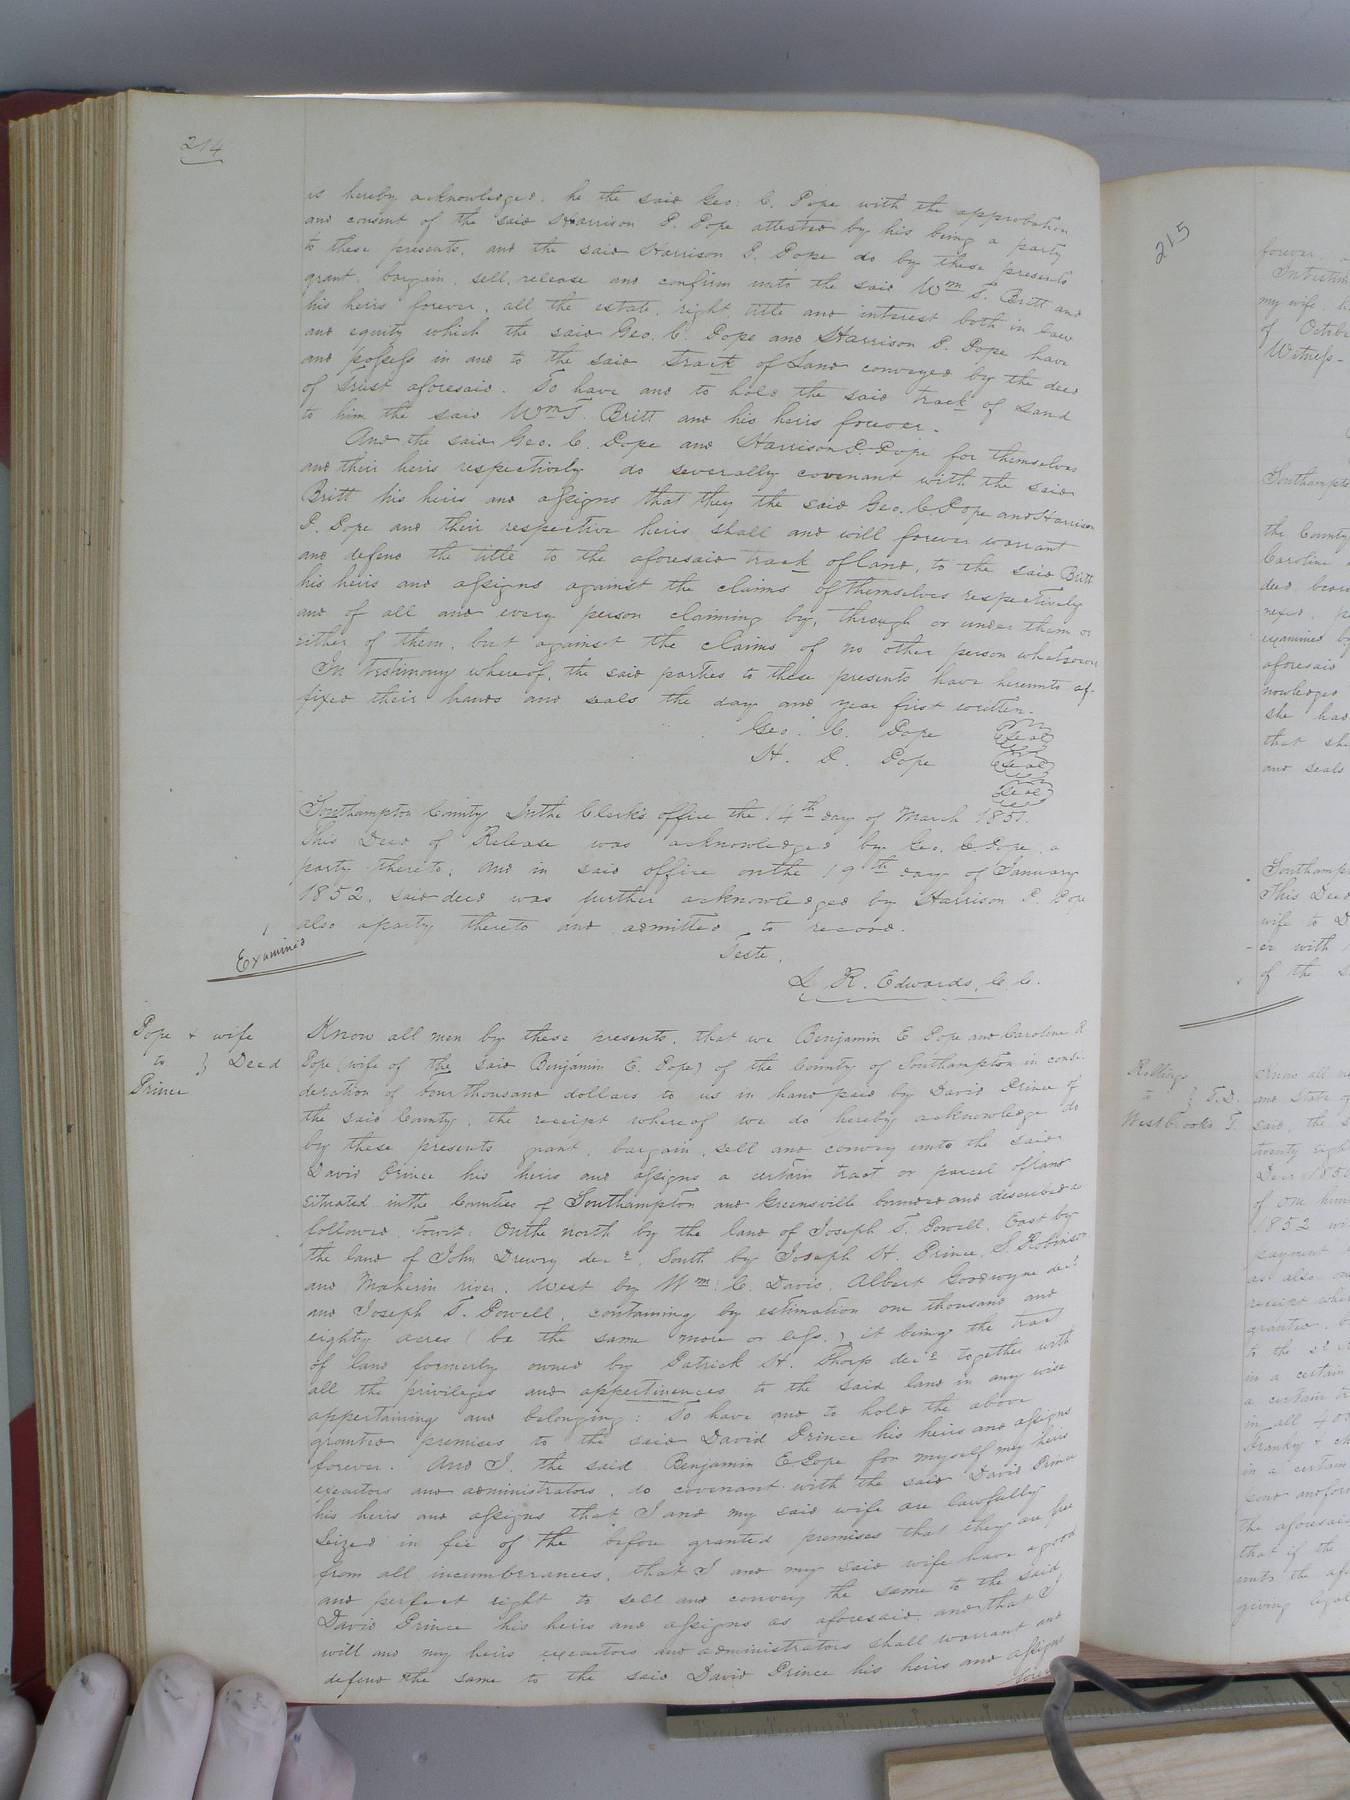 214
is hereby acknowledged. he the said Geo: C. Pope with the approbation
and consent of the said Harrison P. Pope attested by his being a party
to these presents, and the said Harrison P. Pope do by these presents
grant, bargain, sell, release and confirm unto the said Wm T. Britt and
his heirs forever, all the estate, right, title and interest both in law
and equity which the said Geo. C. Pope and Harrison P. Pope have
and possess in and to the said track of Land conveyed by the deed
of Trust aforesaid. To have and to hold the said track of Land
to him the said Wm T. Britt and his heirs forever.
And the said Geo. C. Pope and Harrison P. Pope for themselves
and their heirs respectively do severally covenant with the said
Britt his heirs and assigns that they the said Geo. C. Pope and Harrison
P. Pope and their respective heirs shall and will forever warrant
and defend the title to the aforesaid track of land, to the said Britt
his heirs and assigns against the claims of themselves respectively
and of all and every person claiming by, through or under them or
either of them, but against the claims of no other person whatsoever
In testimony whereof, the said parties to these presents have hereunto af-
fixed their hands and seals the day and year first written.
Geo. C. Pope Seal
H. P. Pope Seal
Seal
Southampton County In the Clerk's office the 14th day of March 1851.
This Deed of Release was acknowledged by Geo. C. Pope, a
party thereto; and in said office on the 19th day of January
1852, said deed was further acknowledged by Harrison P. Pope
also a party thereto and admitted to record.
Examined
Teste,
L. R. Edwards, C. C.
Pope & wife
to } Deed
Prince
Know all men by these presents, that we Benjamin E Pope and Caroline R
Pope (wife of the said Benjamin E. Pope) of the County of Southampton in consi-
deration of four thousand dollars to us in hand paid by David Prince of
the said County, the receipt whereof we do hereby acknowledge do
by these presents grant, bargain, sell and convey unto the said
David Prince his heirs and assigns a certain tract or parcel of land
situated in the Counties of Southampton and Greensville bounded and described as
followed, Towit: On the north by the land of Joseph T. Powell, East by
the land of John Drewry decd, South by Joseph H. Prince, S. Robinson
and Meherin river, West by Wm C. Davis, Albert Goodwyne decd
and Joseph T. Powell, containing by estimation one thousand and
eighty acres (be the same more or less,) it being the tract
of land formerly owned by Patrick H. Thorp decd together with
all the privileges and appertinences to the said land in any wise
appertaining and belonging: To have and to hold the above
granted premises to the said David Prince his heirs and assigns
forever. And I, the said Benjamin E Pope for myself my heirs
executors and administrators, do covenant with the said David Prince
his heirs and assigns that I and my said wife are lawfully
Seized in fee of the before granted premises that they are free
from all incumberances, that I and my said wife have a good
and perfect right to sell and convey the same to the said
David Prince his heirs and assigns as aforesaid, and that I
will and my heirs executors and administrators shall warrant and
defend the same to the said David Prince his heirs and assigns
215
forever,
my wife
of October
Witness
Southampton
the County
Caroline
deed
examined by
aforesaid
nowledged
she had
that she
and seals
Southampton
This Deed
wife to D
er with
of the
Rollings
to } T.D.
Westbrooks T.
Know all me
and State of
said, the
twenty eigh
1850
of one
1852
payment
as also
receipt where
granted, b
to the sd
in a certain
a certain
in all 400
Franky &
in a certain
the aforesaid
that if the
unto the afo
giving legal